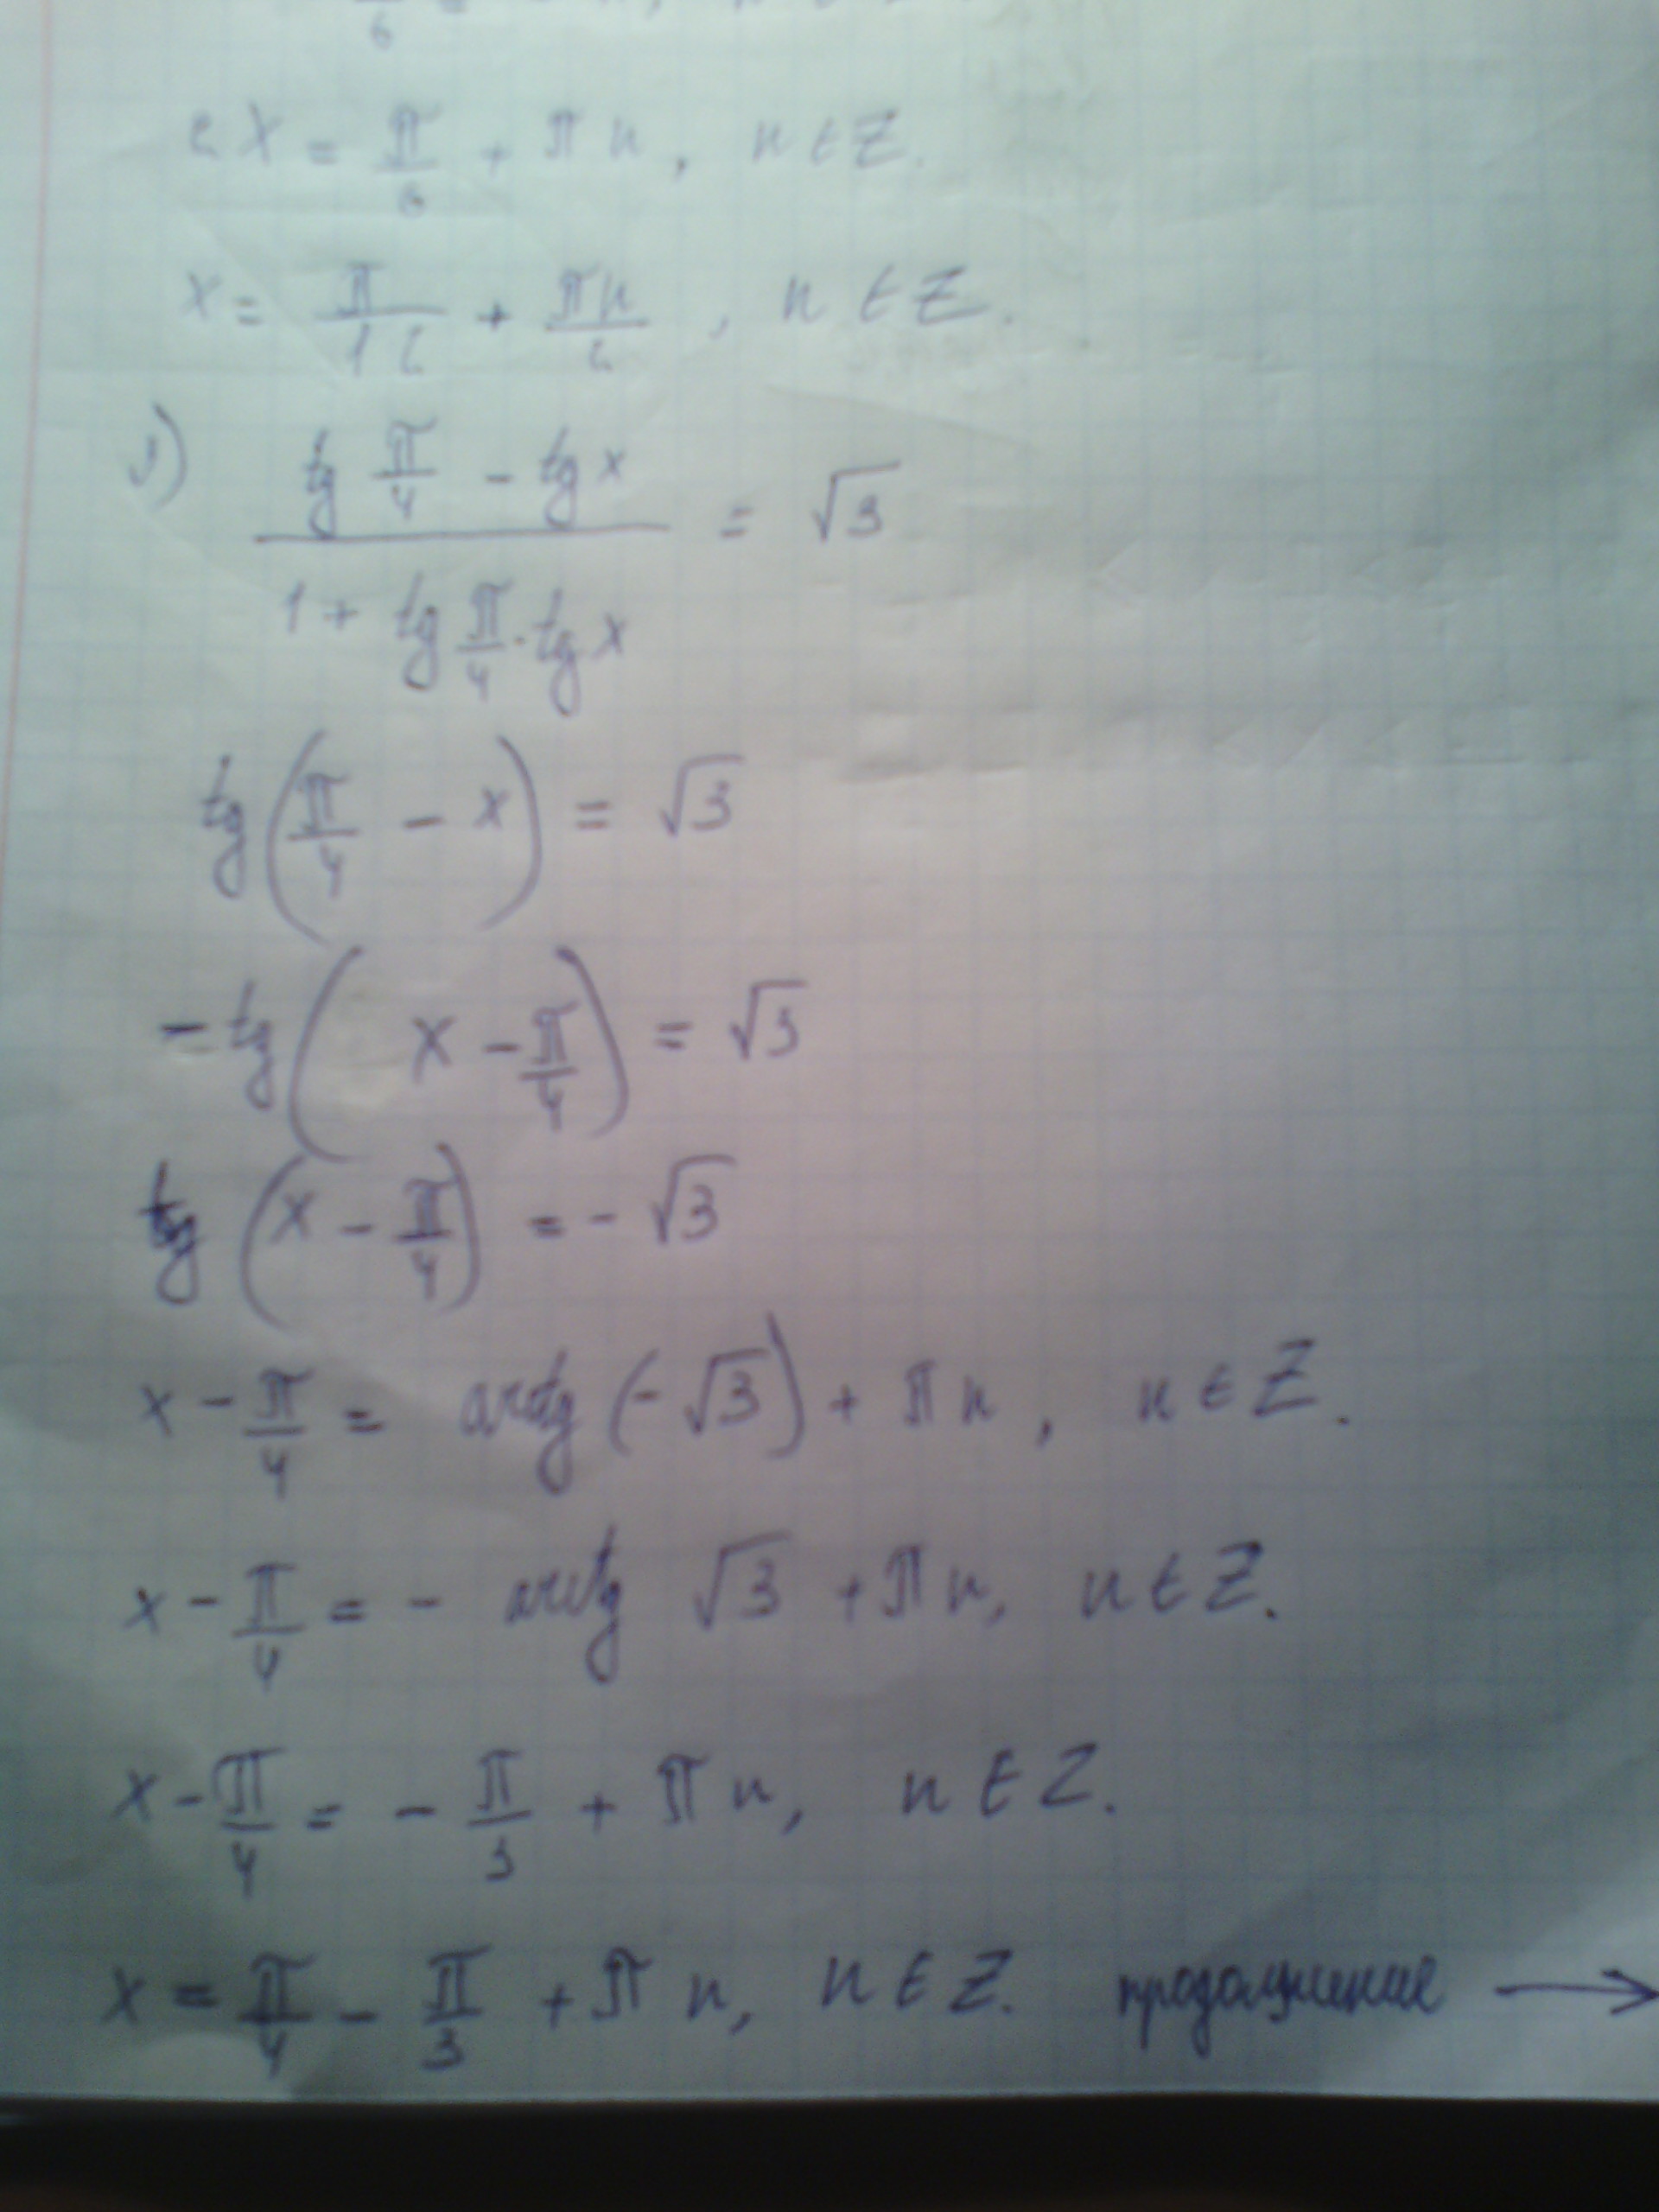 2x = π/6 + πn, n ∈ Z.
x = π/12 + πn/2, n ∈ Z.
(tg π/4 - tg x) / (1 + tg π/4 · tg x) = √3
tg(π/4 - x) = √3
-tg(x - π/4) = √3
tg(x - π/4) = -√3
x - π/4 = arctg(-√3) + πn, n ∈ Z.
x - π/4 = - arctg √3 + πn, n ∈ Z.
x - π/4 = - π/3 + πn, n ∈ Z.
x = π/4 - π/3 + πn, n ∈ Z. продолжение →